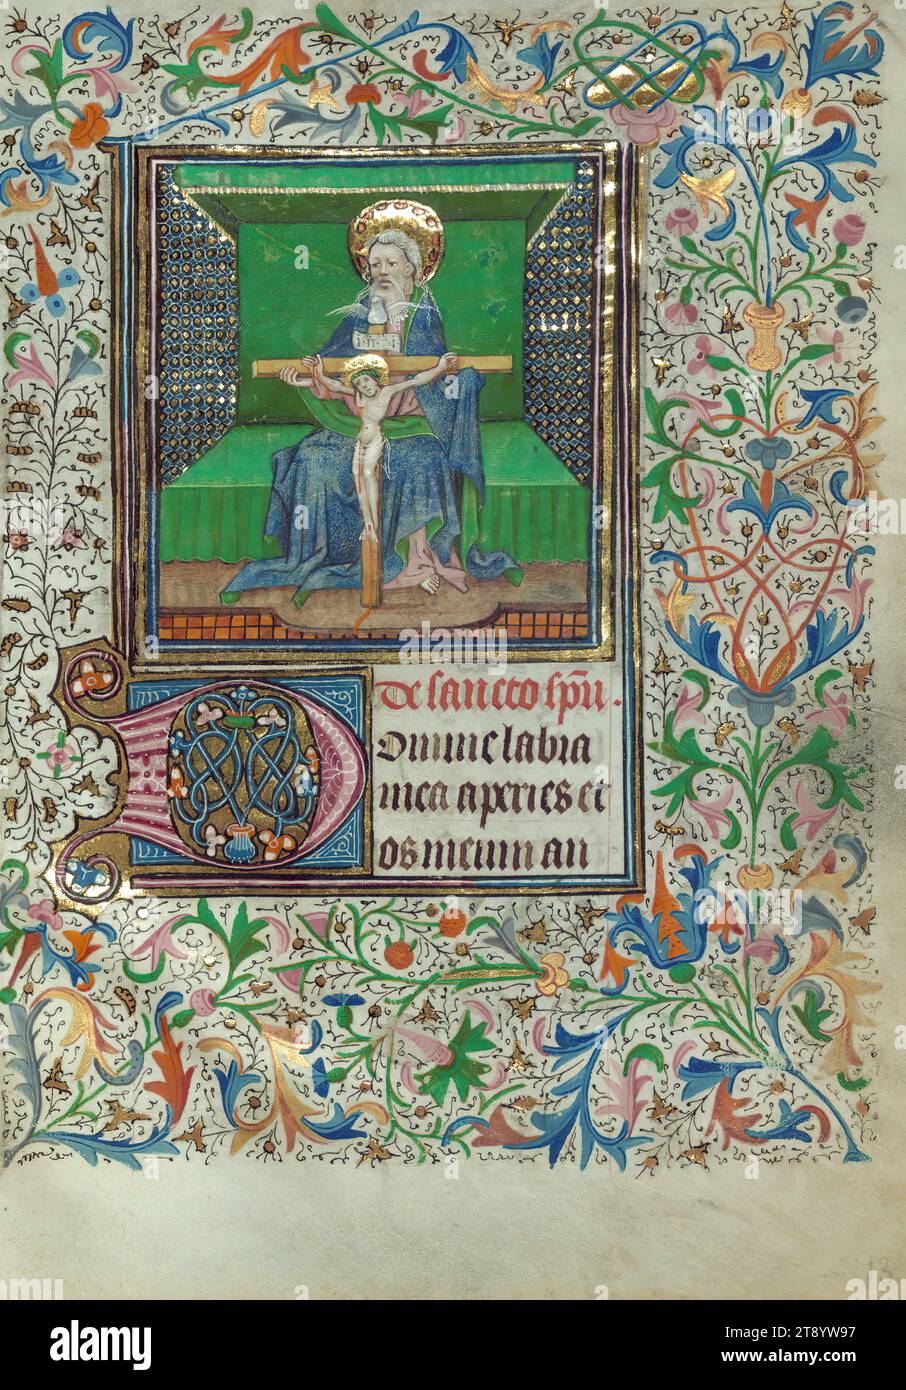 De sancto spu.
Domine labia
mea aperies et
os meum an
18
alamy
Image ID: 2T81YW97
www.alamy.com